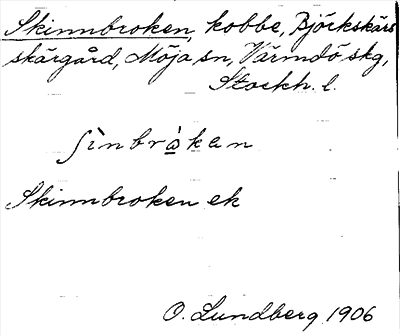 Skinnbroken, kobbe, Björkskärs
skärgård, Möja sn, Värmdö skg,
Stockh. l.
ʃìnbrɷ̀ken
Skinnbroken ek
O. Lundberg 1906